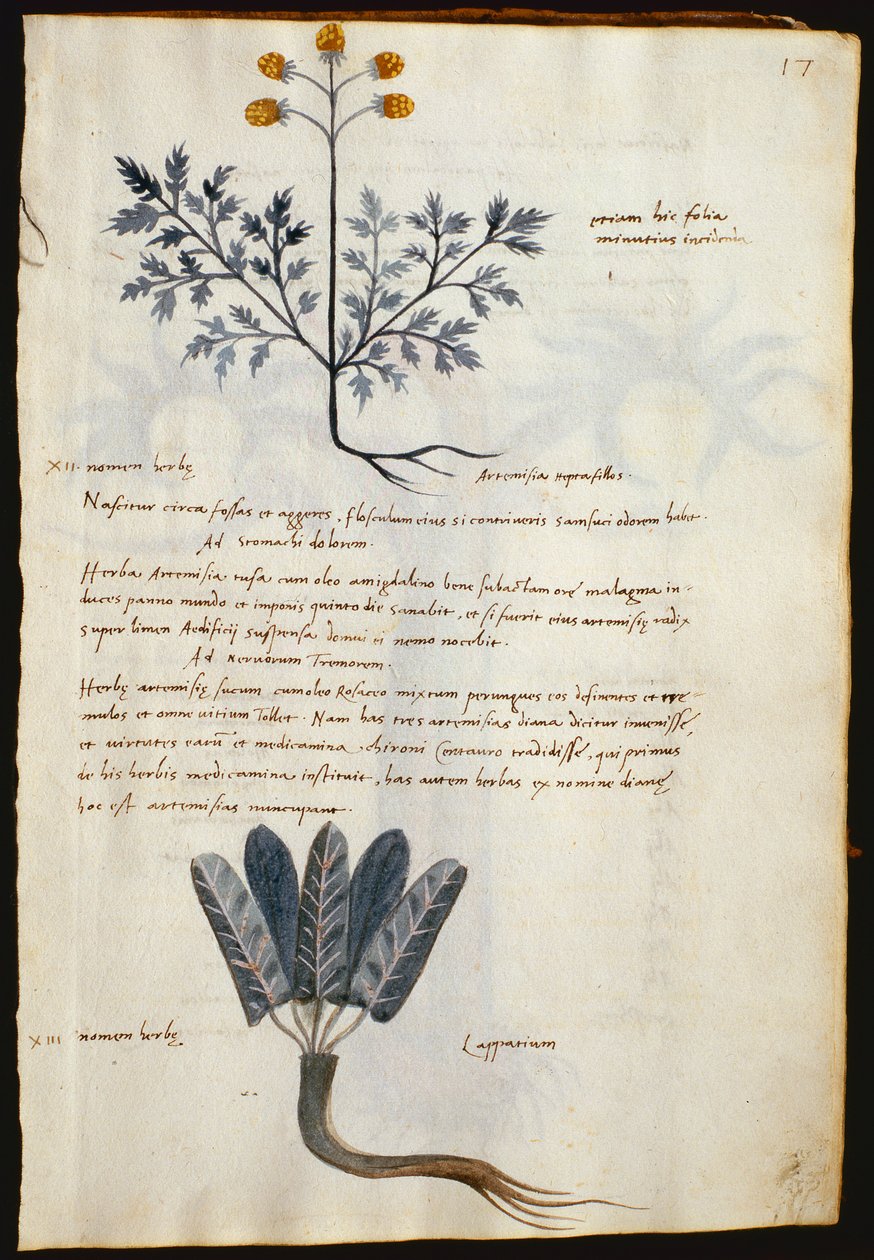 17
etiam hic folia
minutius incidenda
XII. nomen herbę
Artemisia Heptafillos.
Nascitur circa fossas et aggeres, flosculum eius si contriveris samsuci odorem habet.
Ad Stomachi dolorem.
Herba Artemisia tusa cum oleo amigdalino bene subactam ore malagma in-
duces panno mundo et imponis quinto die sanabit, et si fuerit eius artemisię radix
super limen Aedificij suspensa domui ei nemo nocebit.
Ad nervorum Tremorem.
Herbę artemisię sucum cum oleo Rosaceo mixtum perungues eos desinentes et tre-
mulos et omne vitium Tollet. Nam has tres artemisias diana dicitur invenisse,
et virtutes earū et medicamina chironi Centauro tradidisse, qui primus
de his herbis medicamina instituit, has autem herbas ex nomine dianę
hoc est artemisias nuncupant.
XIII nomen herbę.
Lappatium